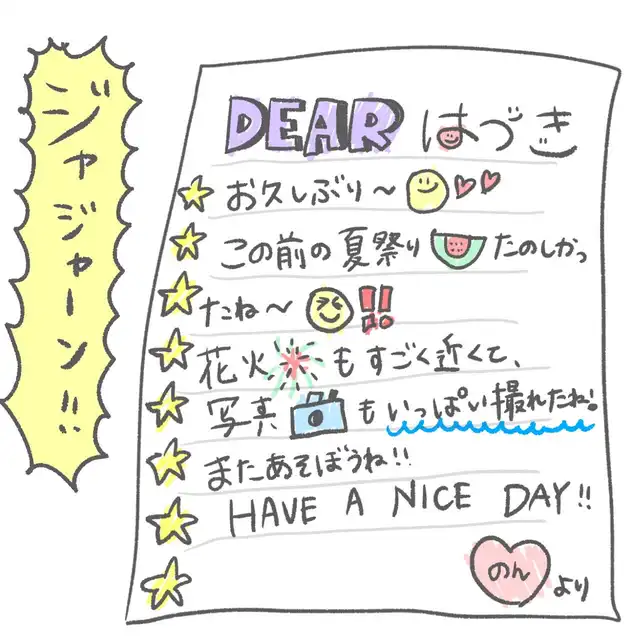 ジャジャーン!!
DEAR はづき
お久しぶり〜
この前の夏祭りたのしかっ
たね〜!!
花火もすごく近くて、
写真もいっぱい撮れたね!
またあそぼうね!!
HAVE A NICE DAY!!
のんより